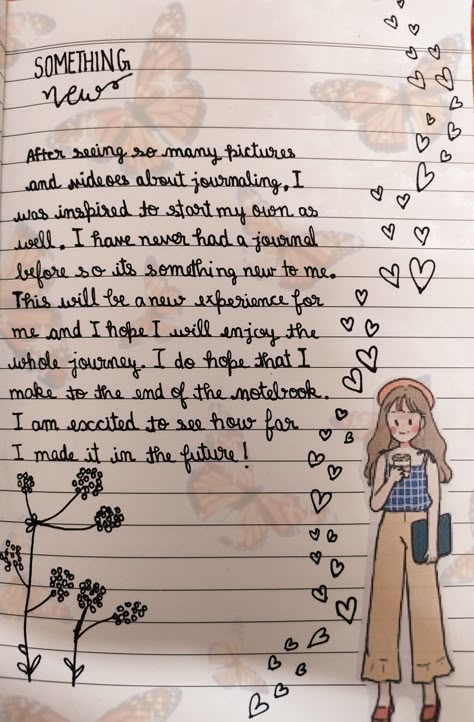 SOMETHING
new
After seeing so many pictures
and videoes about journaling, I
was inspired to start my own as
well. I have never had a journal
before so its something new to me.
This will be a new experience for
me and I hope I will enjoy the
whole journey. I do hope that I
make to the end of the notebook.
I am excited to see how far
I made it in the future!